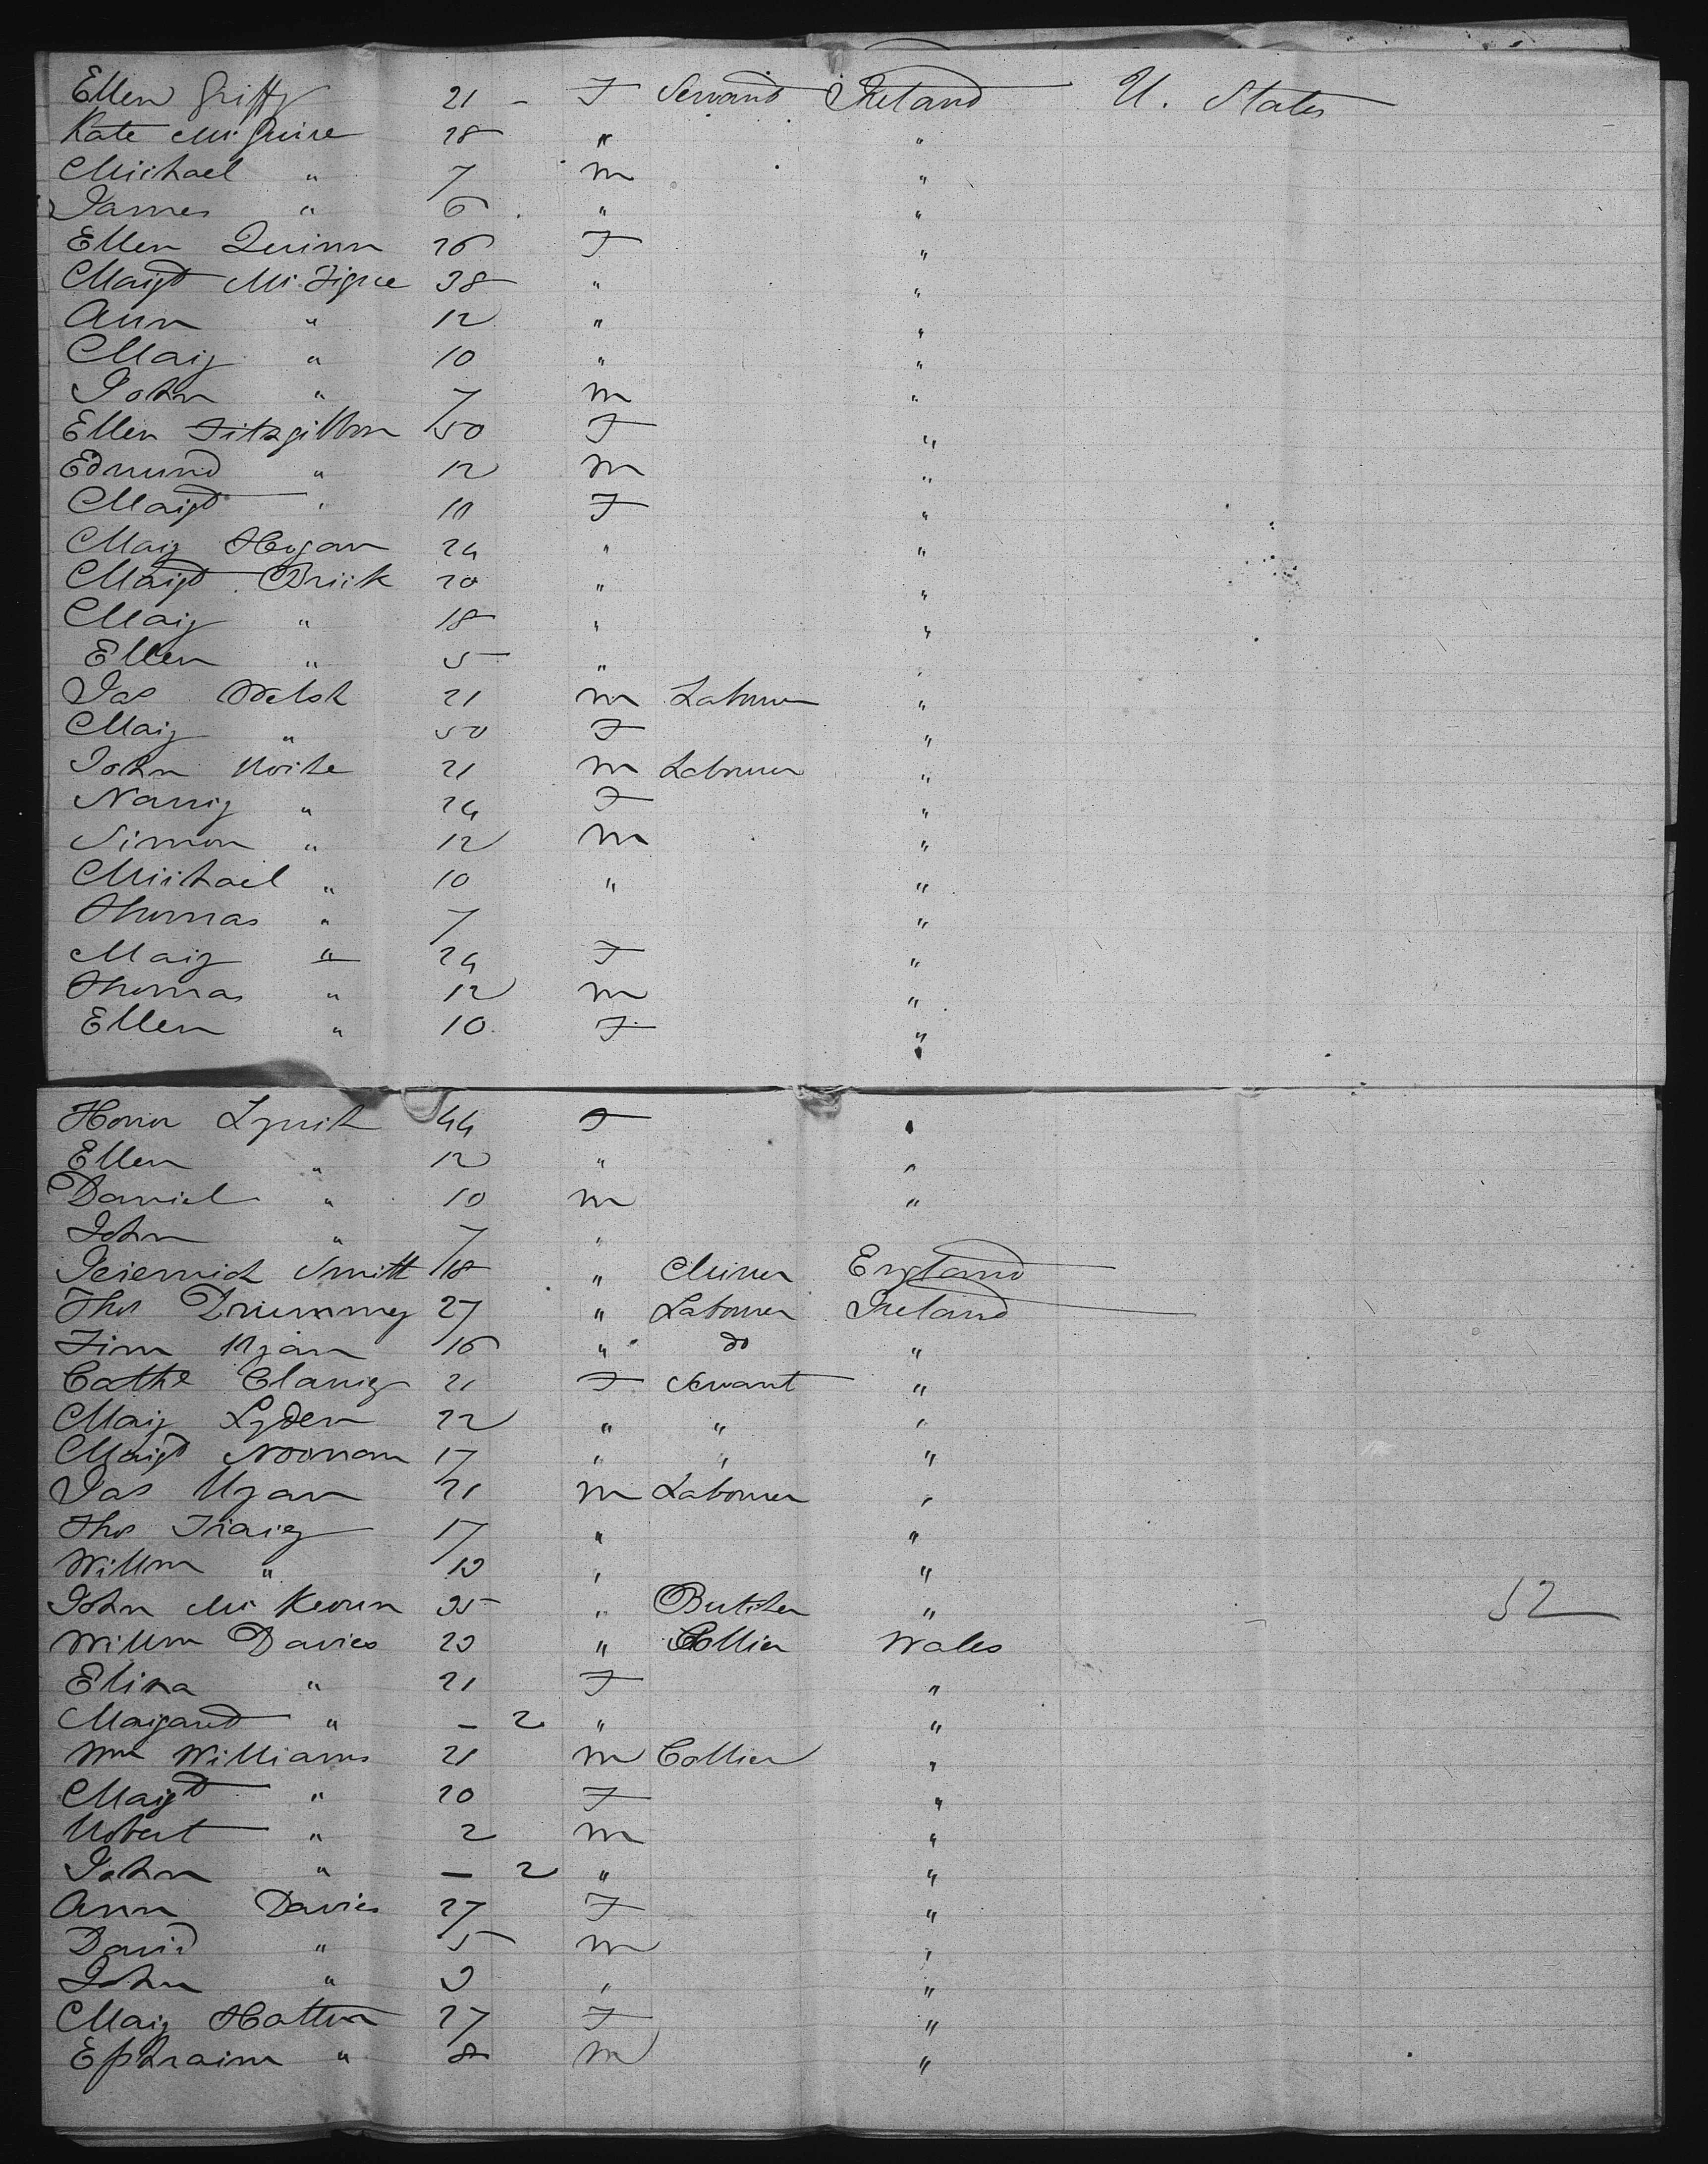 Ellen Griffy 21 - F Servant Ireland U. States
Kate McGuire 28 " "
Michael " 7 m "
James " 6 " "
Ellen Quinn 26 F "
Margt Mc Tigue 38 " "
Ann " 12 " "
Mary " 10 " "
John " 7 m "
Ellen Fitzgibbon 50 F "
Edmund " 12 m "
Margt " 10 F "
Mary Hogan 24 " "
Margt Brick 20 " "
Mary " 18 " "
Ellen " 5 " "
Jas Welsh 21 m Labourer "
Mary " 50 F "
John 21 m Labourer "
Nancy " 24 F "
Simon " 12 m "
Michael " 10 " "
Thomas " 7 "
Mary " 24 F "
Thomas " 12 m "
Ellen " 10 F "
Honor Lynch 44 F "
Ellen " 12 " "
Daniel " 10 m "
John " 7 "
Jeremiah Smith 18 " Miner England
Thos Drummey 27 " Labourer Ireland
Tim Ryan 16 " do "
Cathe Clancy 21 F Servant "
Mary Lyden 22 " " "
Margt Noonan 17 " " "
Jas Ryan 21 m Labourer "
Thos 17 " "
Willm " 13 " "
John Mc Keown 35 " Butcher " 52
Willm Davies 23 " Collier Wales
Eliza " 21 F "
Margaret " - 2 " "
Wm Williams 21 m Collier "
Margt " 20 F "
Robert " 2 m "
John " - 2 " "
Ann Davies 27 F "
David " 5 m "
John " 3 " "
Mary Hatton 27 F "
Ephraim " 8 m "